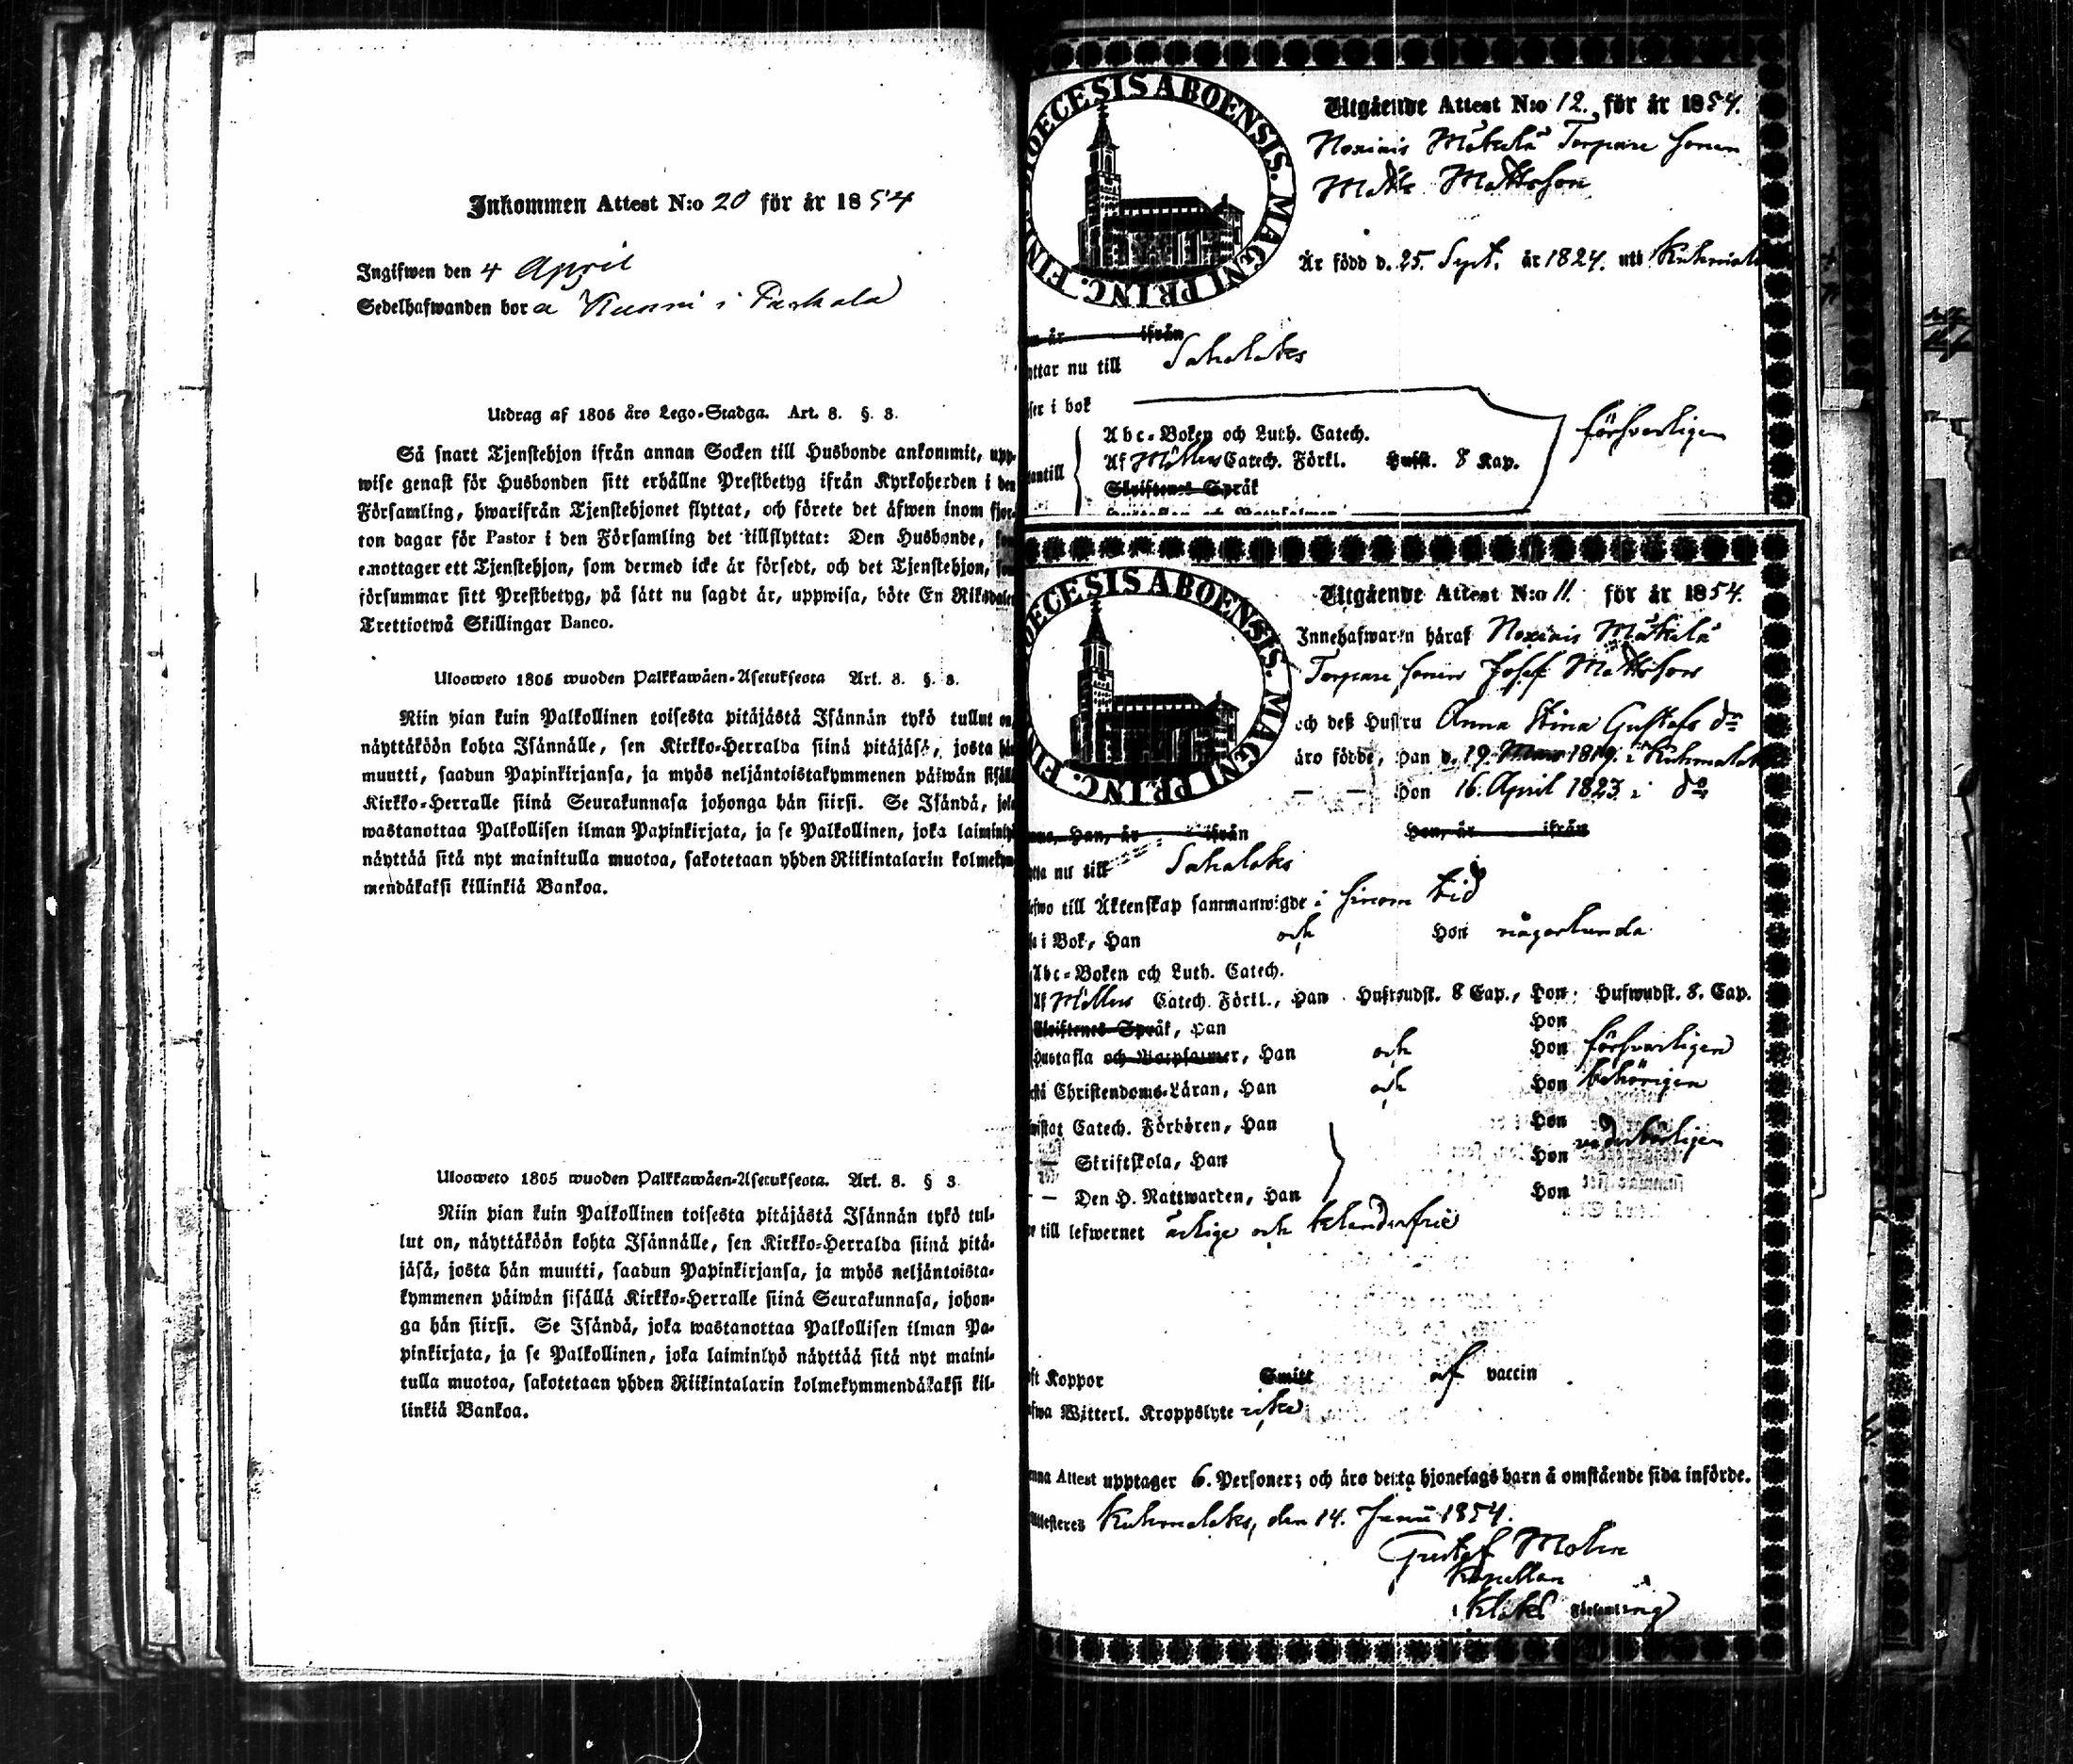 Inkommen Attest N:o 20 för år 1854
Ingifwen den 4 April
Sedelhafwanden bor å i
Utdrag af 1805 års Lego-Stadga. Art. 8. §. 3.
Så snart Tjenstehjon ifrån annan Socken till Husbonde ankommit, upp-
wise genast för Husbonden sitt erhållne Prestbetyg ifrån Kyrkoherden i den
Församling, hwarifrån Tjenstehjonet flyttat, och förete det äfwen inom fjor-
ton dagar för Pastor i den Församling det tillflyttat: Den Husbonde,
emottager ett Tjenstehjon, som dermed icke är försedt, och det Tjenstehjon,
försummar sitt Prestbetyg, på sätt nu sagdt är, uppwisa, böte En Riksdaler
Trettiotwå Skillingar Banco.
Ulosweto 1805 wuoden Palkkawäen-Asetuksesta Art. 8. §. 3.
Niin pian kuin Palkollinen toisesta pitäjästä Isännän tykö tullut on,
näyttäköön kohta Isännälle, sen Kirkko-Herralda siinä pitäjäsä, josta hän
muutti, saadun Papinkirjansa, ja myös neljäntoistakymmenen päiwän sisällä
Kirkko-Herralle siinä Seurakunnasa johonga hän siirsi. Se Isändä, joka
wastanottaa Palkollisen ilman Papinkirjata, ja se Palkollinen, joka laiminlyö
näyttää sitä nyt mainitulla muotoa, sakotetaan yhden Riikintalarin kolmekym-
mendäkaksi killinkiä Bankoa.
Ulosweto 1805 wuoden Palkkawäen-Asetuksesta. Art. 8. § 3.
Niin pian kuin Palkollinen toisesta pitäjästä Isännän tykö tul-
lut on, näyttäköön kohta Isännälle, sen Kirkko-Herralda siinä pitä-
jäsä, josta hän muutti, saadun Papinkirjansa, ja myös neljäntoista-
kymmenen päiwän sisällä Kirkko-Herralle siinä Seurakunnasa, johon-
ga hän siirsi. Se Isändä, joka wastanottaa Palkollisen ilman Pa-
pinkirjata, ja se Palkollinen, joka laiminlyö näyttää sitä nyt maini-
tulla muotoa, sakotetaan yhden Riikintalarin kolmekymmendäkaksi kil-
linkiä Bankoa.
DIOECESIS ABOENSIS. MAGNI PRINC. FINL
Utgående Attest N:o 12. för år 1854.
Noxiais Mäkelä Torpare Sonen
Matts Mattsson
Är född d. 25. Sept. år 1824. uti Kuhmalaks
är ifrån
ttar nu till Sahalaks
ser i bok
Abc-Boken och Luth. Catech.
Af Möllers Catech. Förkl. Hufst. 8 Kap. försvarligen
antill
Skriftenes Språk
DIOECESIS ABOENSIS. MAGNI PRINC. FINL
Utgående Attest N:o 11. för år 1854.
Innehafwaren häraf Noxiais Mäkelä
Torpare Sonen Josef Mattsson
och deß Hustru Anna Stina Gustafs dr
äro födde, Han d. 19. Mars 1819. i Kuhmalaks
— — Hon 16. April 1823 i do
Han, är ifrån Hon, är ifrån
tta nu till Sahalaks
efwo till Äktenskap sammanwigde i sinom tid
i Bok, Han och Hon någorlunda
Abc-Boken och Luth. Catech.
Af Möllers Catech. Förkl., Han Hufwudst. 8 Cap., Hon Hufwudst. 8. Cap.
Skriftenes Språk, Han Hon
Hustafla och Botpsalmer, Han och Hon försvarligen
Christendoms-Läran, Han och Hon behörigen
wistat Catech. Förhören, Han Hon
— Skriftskola, Han Hon vederbörligen
— Den H. Nattwarden, Han Hon
till lefwernet ärlige och klanderfrie
ft Koppor Smitt af vaccin
fwa Witterl. Kroppslyte icke
nna Attest upptager 6. Personer; och äro detta hjonelags barn å omstående sida införde.
Attesteres Kuhmalaks, den 14. Junii 1854.
Gustaf Molin
Kapellan
i Församling